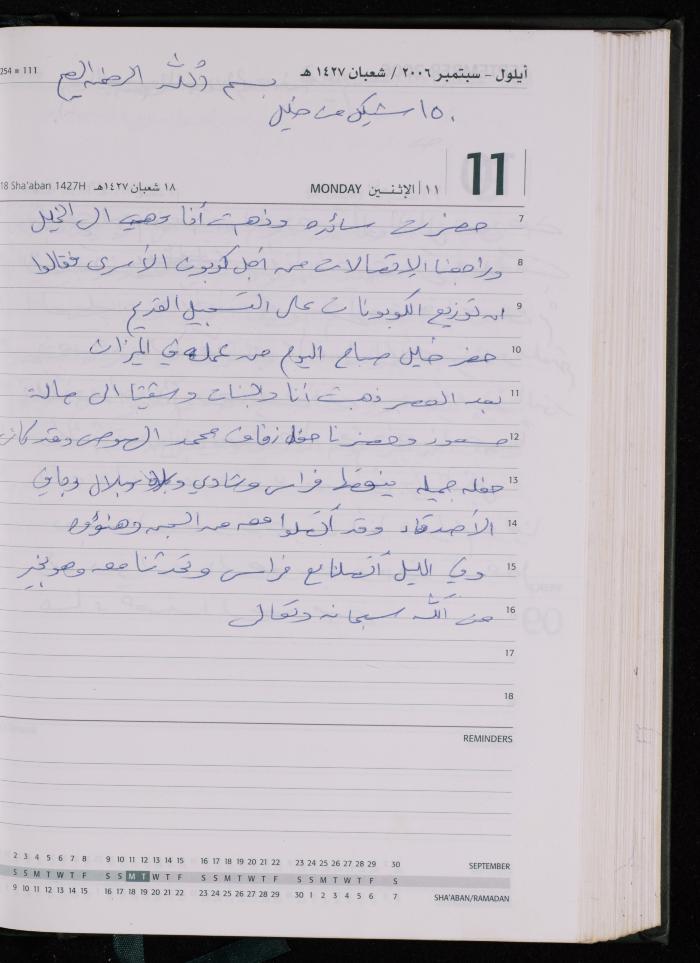 254 ■ 111
أيلول - سبتمبر ٢٠٠٦ / شعبان ١٤٢٧ هـ
بسم الله الرحمن الرحيم
١٥٠ شيكل من خليل
11
18 Sha'aban 1427H ١٨ شعبان ١٤٢٧هـ MONDAY الإثنــين ١١
7 حضرت سائده وذهبت أنا وهي الى الخليل
8 وراجعنا الاتصالات من أجل كوبون الأسرى فقالوا
9 ان توزيع الكوبونات على التسجيل القديم
10 حضر خليل صباح اليوم من عمله في
11 بعد العصر ذهبت أنا والبنات الى صالة
12 وحضرنا حفل زفاف محمد وقد كانت
13 حفله جميله ينقصها فراس وشادي وبلال وباقي
14 الأصدقاء وقد أتصلوا معه من السجن وهنؤوه
15 وفي الليل أتصلنا مع فراس وتحدثنا معه وهو بخير
16 من الله سبحانه وتعالى
17
18
REMINDERS
2 3 4 5 6 7 8 9 10 11 12 13 14 15 16 17 18 19 20 21 22 23 24 25 26 27 28 29 30 SEPTEMBER
S S M T W T F S S M T W T F S S M T W T F S S M T W T F S
9 10 11 12 13 14 15 16 17 18 19 20 21 22 23 24 25 26 27 28 29 30 1 2 3 4 5 6 7 SHA'ABAN/RAMADAN